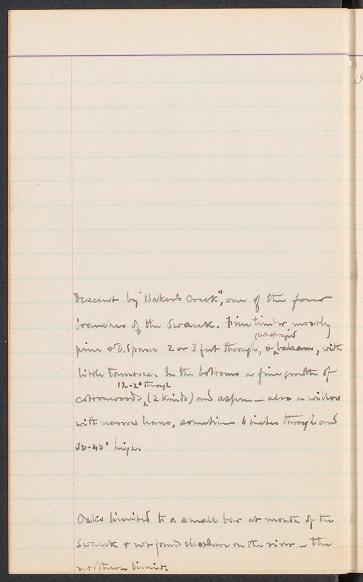 Descent by "Baker's Creek", one of the four
branches of the Swauk. Fine timber, mostly
flat-sprayed
pine & D. Spruce 2 or 3 feet through, & balsam, with
little tamarac. In the bottoms a fine growth of
12-20 through
cottonwoods (2 kinds) and aspen - also a willow
with narrow leaves, sometimes 6 inches through and
30-40° high.
Oaks limited to a small bar at mouth of the
Swauk & not found elsewhere on the river - the
northern limit.